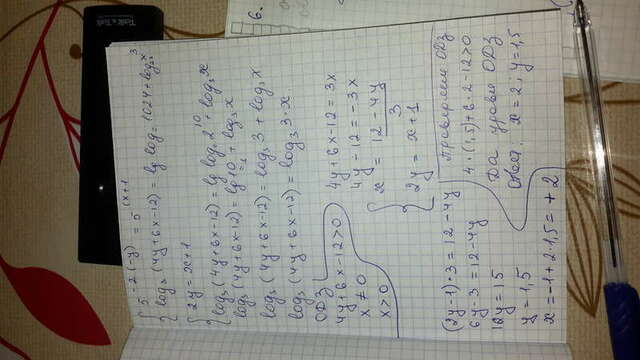 5^{-2(-y)} = 5^{(x+1}
log₃ (4y+6x-12) = lg log₂ 1024 + log₃ x
2y = x+1
log₃ (4y+6x-12) = lg log₂ 2^{10} + log₃ x
log₃ (4y+6x-12) = lg 10 + log₃ x
log₃ (4y+6x-12) = log₃ 3 + log₃ x
log₃ (4y+6x-12) = log₃ 3·x
ОДЗ
4y+6x-12>0
x ≠ 0
x>0
4y+6x-12 = 3x
4y-12 = -3x
x = \frac{12-4y}{3}
2y = x+1
(2y-1)·3 = 12-4y
6y-3 = 12-4y
10y = 15
y = 1,5
x = -1+2·1,5 = +2
Проверяем ОДЗ
4·(1,5)+6·2-12>0
Да уровн ОДЗ
x=2, y=1,5
6.